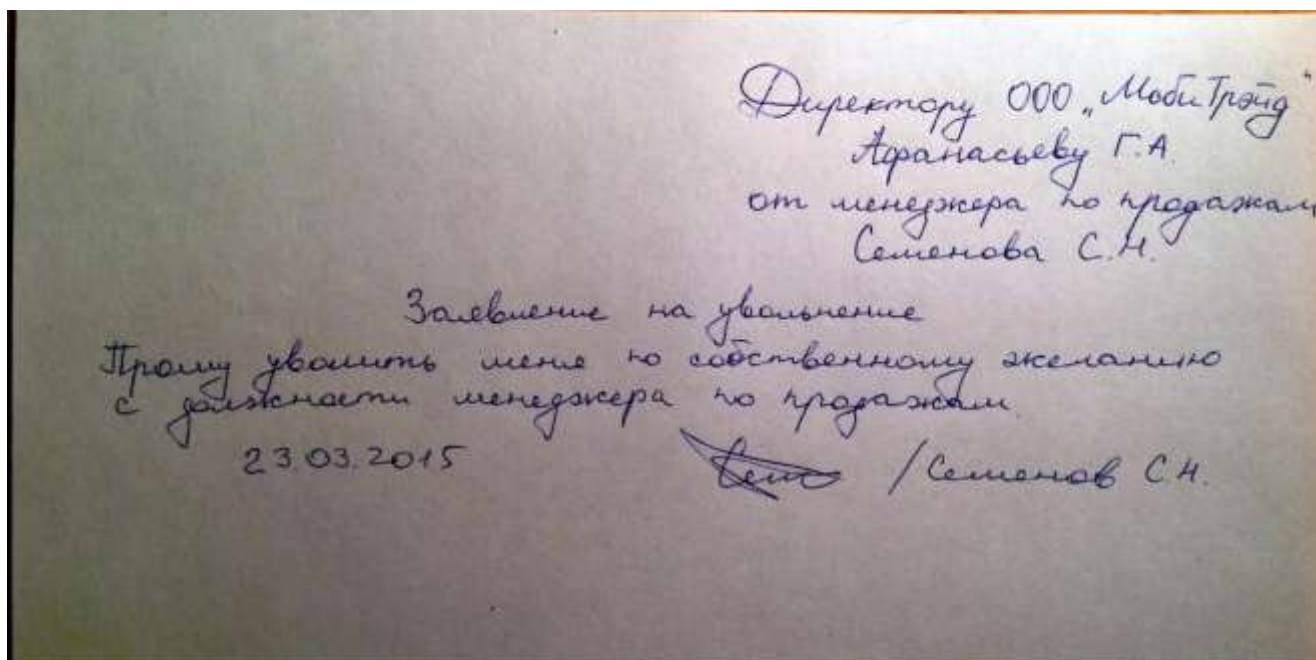 Директору ООО „МобиТрэйд"
Афанасьеву Г.А.
от менеджера по продажам
Семенова С.Н.
Заявление на увольнение
Прошу уволить меня по собственному желанию
с должности менеджера по продажам.
23.03.2015 /Семенов С.Н.